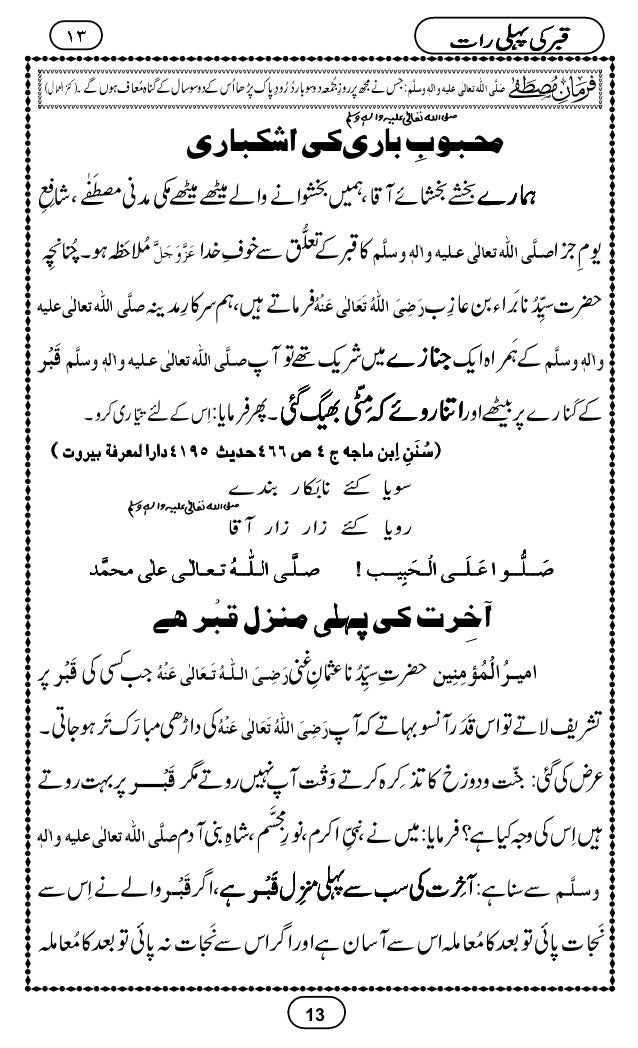 قبر کی پہلی رات
۱۳
فرمانِ مُصطَفٰے صَلَّی اللہ تعالٰی علیہ واٰلہٖ وسلَّم: جس نے مجھ پر روزِ جُمعہ دو سو بار دُرُودِ پاک پڑھا اُس کے دو سو سال کے گناہ مُعاف ہوں گے ۔ (کنز العمال)
صلی اللہ تعالیٰ علیہ والہٖ وسلم
محبوبِ باری کی اشکباری
ہمارے بخشے بخشائے آقا ،ہمیں بخشوانے والے میٹھے میٹھے مکی مدنی مصطَفٰے ،شافِعِ
یومِ جزا صلَّی اللہ تعالیٰ علیہ واٰلہٖ وسلَّم کا قبر کے تعلُّق سے خوفِ خدا عَزَّوَجَلَّ مُلاحَظہ ہو۔ چُنانچِہ
حضرتِ سیِّدُنا بَراء بن عازِب رَضِیَ اللہُ تَعَالٰی عَنْہُ فرماتے ہیں،ہم سرکارِ مدینہ صلَّی اللہ تعالیٰ علیہ
واٰلہٖ وسلَّم کے ہَمراہ ایک جنازے میں شریک تھے تو آپ صلَّی اللہ تعالیٰ علیہ واٰلہٖ وسلَّم قَبْر
کے گنارے پر بیٹھے اور اتنا روئے کہ مِٹّی بھیگ گئی ۔ پھر فرمایا: اِس کے لئے تیّاری کرو۔
(سُنَنِ اِبن ماجه ج ٤ ص ٤٦٦ حدیث ٤١٩٥ دارالمعرفة بیروت )
سویا کئے نابَکار بندے
صلی اللہ تعالیٰ علیہ والہٖ وسلم
رویا کئے زار زار آقا
صَلُّوا عَلَی الْحَبِیب ! صلَّی اللہُ تعالٰی علٰی محمَّد
آخِرت کی پہلی منزل قبْر ھے
امیرُالْمُؤمِنین حضرتِ سیِّدُنا عثمانِ غنی رَضِیَ اللہُ تَعَالٰی عَنْہُ جب کسی کی قَبْر پر
تشریف لاتے تو اس قَدَر آنسو بہاتے کہ آپ رَضِیَ اللہُ تَعَالٰی عَنْہُ کی داڑھی مبارَک تَر ہو جاتی ۔
عرض کی گئی: جنّت و دوزخ کا تذکِرہ کرتے وَقْت آپ نہیں روتے مگر قَبْر پر بہت روتے
ہیں اِس کی وجہ کیا ہے؟ فرمایا: میں نے ،نبیِّ اکرم ،نورِ مجسَّم ،شاہِ بنی آدم صلَّی اللہ تعالیٰ علیہ واٰلہٖ
وسلَّم سے سنا ہے: آخِرت کی سب سے پہلی منزِل قَبْر ہے، اگر قَبْر والے نے اِس سے
نَجات پائی تو بعد کا مُعاملہ اس سے آسان ہے اور اگر اس سے نَجات نہ پائی تو بعد کا مُعاملہ
13